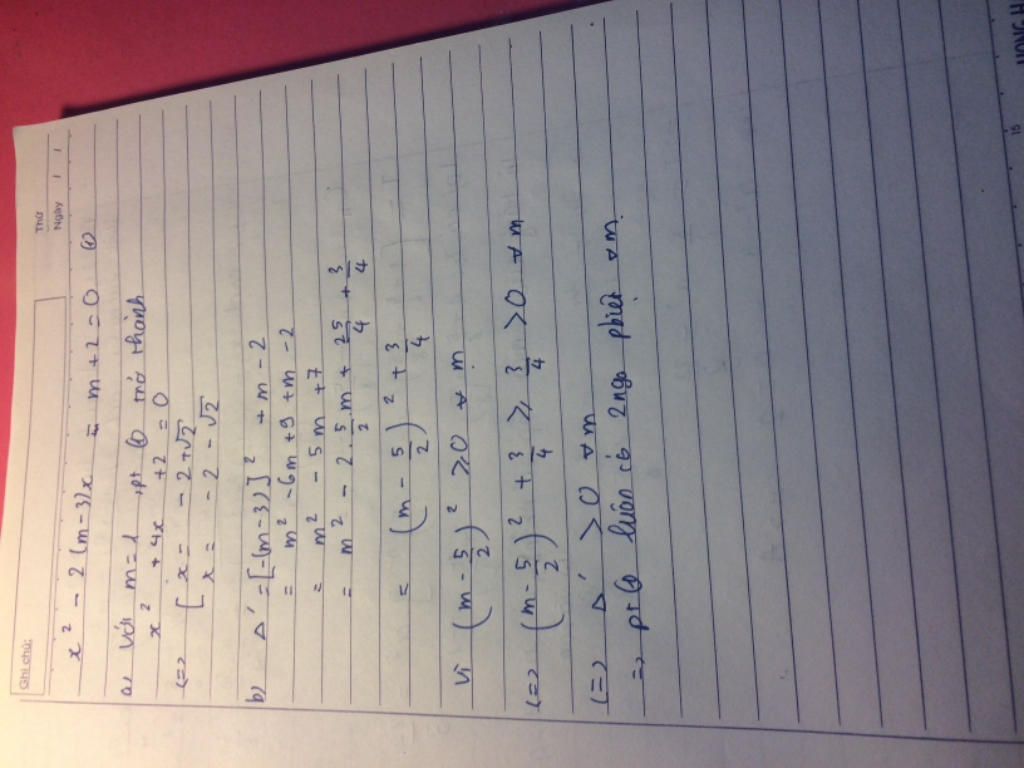 Ghi chú:
Thứ
Ngày / /
x² - 2(m-3)x - m + 2 = 0 ①
a) Với m = 1, pt ① trở thành
x² + 4x + 2 = 0
(=> [ x = -2+√2
x = -2-√2
b) Δ' = [-(m-3)]² + m - 2
= m² - 6m + 9 + m - 2
= m² - 5m + 7
= m² - 2. 5/2 .m + 25/4 + 3/4
= (m - 5/2)² + 3/4
Vì (m - 5/2)² ≥ 0 ∀ m
(=> (m - 5/2)² + 3/4 ≥ 3/4 > 0 ∀ m
(=> Δ' > 0 ∀ m
=> pt ① luôn có 2 ngo phiệt ∀ m.
15